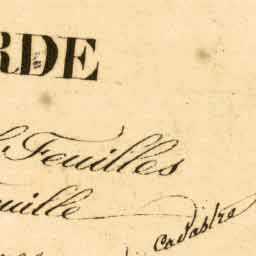 RDE
Feuilles
uille
Cadastre